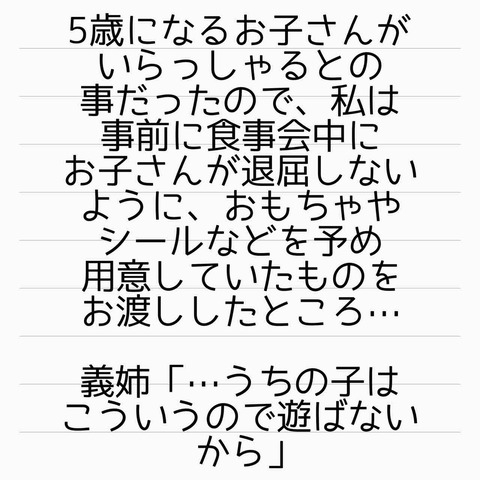 5歳になるお子さんが
いらっしゃるとの
事だったので、私は
事前に食事会中に
お子さんが退屈しない
ように、おもちゃや
シールなどを予め
用意していたものを
お渡ししたところ…
義姉「…うちの子は
こういうので遊ばない
から」